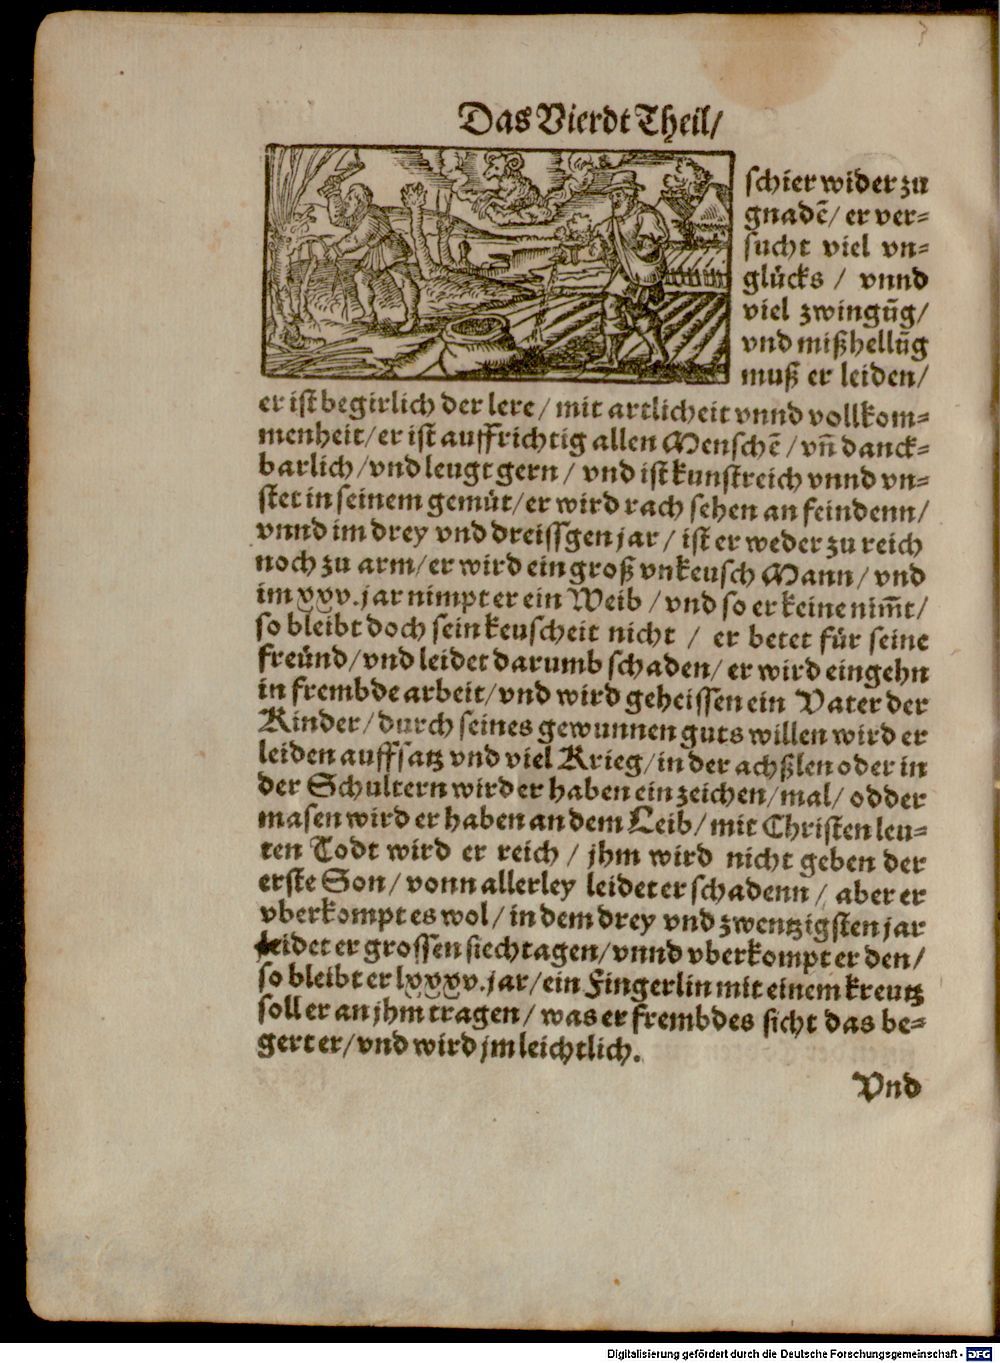 Das Vierdt Theil/
schier wider zu
gnadẽ/ er ver=
sucht viel vn=
glücks / vnnd
viel zwingũg/
vnd mißhellũg
muß er leiden/
er ist begirlich der lere/ mit artlicheit vnnd vollkom=
menheit/ er ist auffrichtig allen Menschẽ/ vñ danck=
barlich/ vnd leugt gern/ vnd ist kunstreich vnnd vn=
stet in seinem gemüt/ er wird rach sehen an feindenn/
vnnd im drey vnd dreissgen jar/ ist er weder zu reich
noch zu arm/ er wird ein groß vnkeusch Mann/ vnd
im xxv. jar nimpt er ein Weib / vnd so er keine nim̃t/
so bleibt doch sein keuscheit nicht / er betet für seine
freünd/ vnd leidet darumb schaden/ er wird eingehn
in frembde arbeit/ vnd wird geheissen ein Vater der
Kinder/ durch seines gewunnen guts willen wird er
leiden auffsatz vnd viel Krieg/ in der achßlen oder in
der Schultern wird er haben ein zeichen/ mal/ odder
masen wird er haben an dem Leib/ mit Christen leu=
ten Todt wird er reich / jhm wird nicht geben der
erste Son/ vonn allerley leidet er schadenn / aber er
vberkompt es wol/ in dem drey vnd zwentzigsten jar
leidet er grossen siechtagen/ vnnd vberkompt er den/
so bleibt er lxxxv. jar/ ein Fingerlin mit einem kreutz
soll er an jhm tragen/ was er frembdes sicht das be=
gert er/ vnd wird jm leichtlich.
Vnd
Digitalisierung gefördert durch die Deutsche Forschungsgemeinschaft - DFG